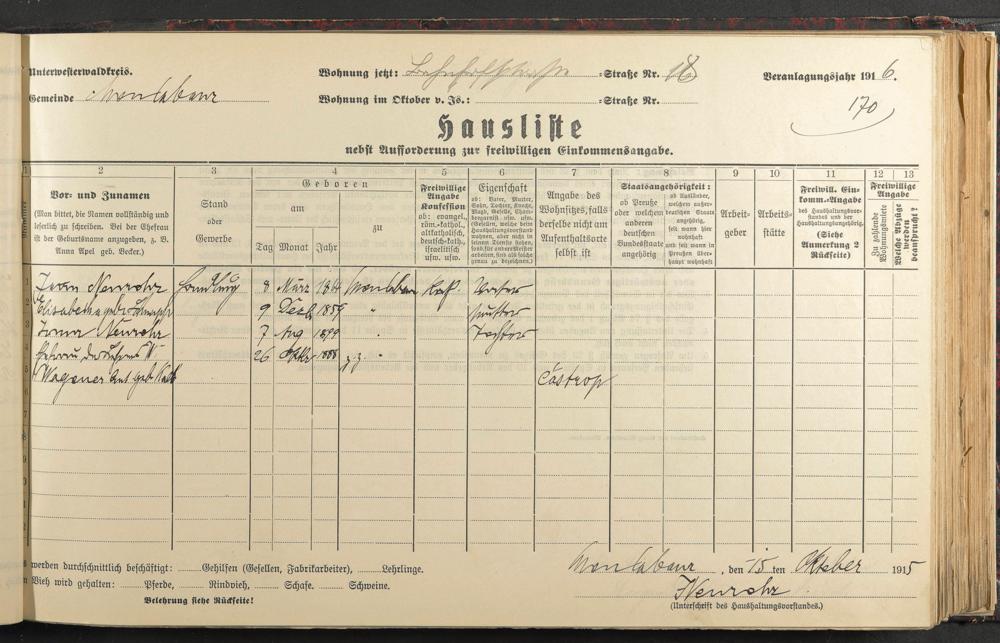 Unterwesterwaldkreis. Wohnung jetzt: Bahnhofstrasse =Straße Nr. 18 Veranlagungsjahr 1916.
Gemeinde Montabaur Wohnung im Oktober v. Js.: =Straße Nr. 170
Hausliste
nebst Aufforderung zur freiwilligen Einkommensangabe.
1 2 3 4 5 6 7 8 9 10 11 12 13
Vor- und Zunamen
(Man bittet, die Namen vollständig und
leserlich zu schreiben. Bei der Ehefrau
ist der Geburtsname anzugeben, z. B.
Anna Apel geb. Becker.)
Stand
oder
Gewerbe
Geboren
am
zu
Tag Monat Jahr
Freiwillige
Angabe
Konfession
ob: evangel.,
röm.-kathol.,
altkatholisch,
deutsch-kath.,
israelitisch
usw. usw.
Eigenschaft
ob: Vater, Mutter,
Sohn, Tochter, Knecht,
Magd, Geselle,
Angabe des
Wohnsitzes, falls
derselbe nicht am
Aufenthaltsorte
selbst ist
Staatsangehörigkeit:
ob Preuße
oder welchem
anderen
deutschen
Bundesstaate
angehörig
ob Ausländer,
welchem außer-
deutschen Staate
angehörig,
seit wann hier
wohnhaft
und seit wann in
Preußen über-
haupt wohnhaft
Arbeit-
geber
Arbeits-
stätte
Freiwill. Ein-
komm.-Angabe
des Haushaltungsvor-
standes und der
Haushaltungsangehörig.
(Siehe
Anmerkung 2
Rückseite)
Freiwillige
Angabe
Zu zahlende
Wohnungsmiete
Welche Abzüge
werden
beansprucht?
1 Neurohr Handlung 8 März Montabaur Kath. Vater
2 Elisabeth geb. 9 Dezb 1859 " Mutter
3 Irma Neurohr 7 Aug 1899 " Tochter
4 26 Oktbr 1888 z.Z. "
5 Wagener geb. Castrop
werden durchschnittlich beschäftigt: Gehilfen (Gesellen, Fabrikarbeiter), Lehrlinge.
Vieh wird gehalten: Pferde, Rindvieh, Schafe. Schweine.
Belehrung siehe Rückseite!
Montabaur, den 15 ten Oktober 1915
Neurohr
(Unterschrift des Haushaltungsvorstandes.)